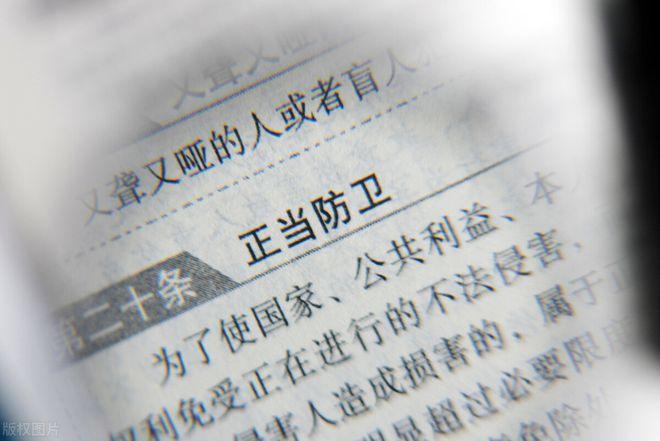 又聋又哑
又聋又哑的人或者盲人
正当防卫
第二十条
为了使国家、公共利益、本人
权利免受正在进行的不法侵害,
侵害人造成损害的,属于正
明显超过必要限度
免除处
版权图片